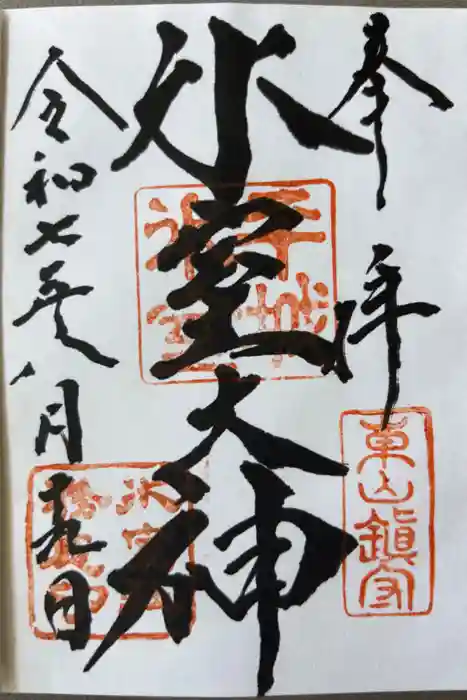 奉拝
東山鎮守
氷室大神
平城
氷室
令和七年八月